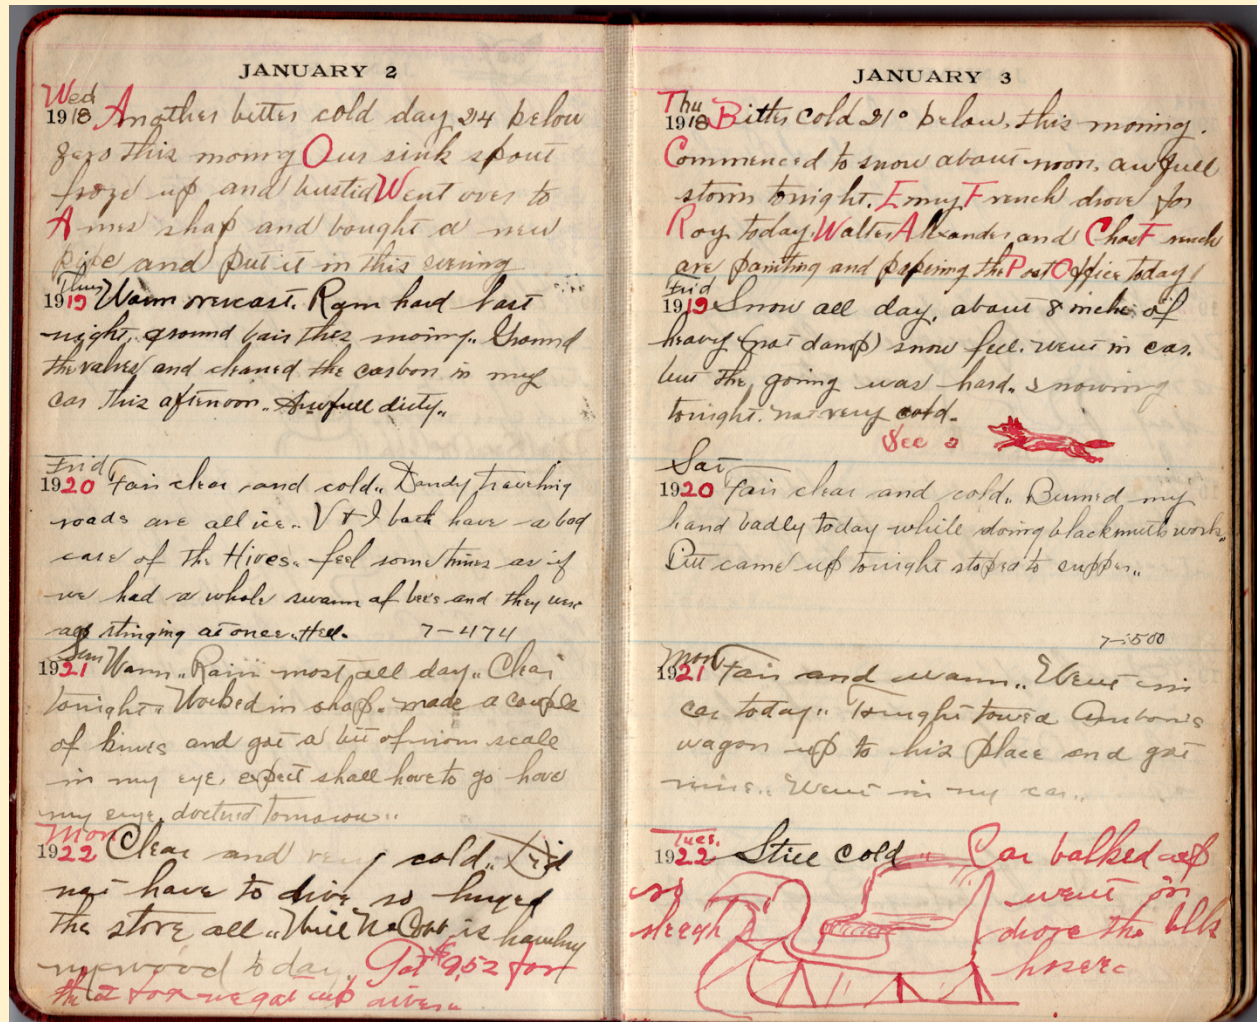 JANUARY 2
Wed
1918 Another bitter cold day 24 below
zero this mornig Our sink spout
froze up and bustid Went over to
Ames shop and bought a new
pipe and put it in this evening
Thur
1919 Warm overcast. Rain hard last
night, ground bair this morning. Ground
the valves and cleaned the carbon in my
car this afternoon.. Awfull dirty..
Frid
1920 Fair clear and cold.. Dandy traveling
roads are all ice.. V + I both have a bad
case of the Hives. feel sometimes as if
we had a whole swarm of bees and they were
all stinging at once. Hell.
7-474
Sun
1921 Warm.. Rain most all day..
tonight. Worked in shop. made a couple
of knives and got a bit of iron scale
in my eye, expect shall have to go have
my eye doctred tomorow..
Mon
1922 Clear and very cold.. Did
not have to drive so huged
the store all.. Will is hawling
my wood today. Got $9.52 for
the fox we got up
JANUARY 3
Thu
1918 Bitter cold 21° below, this morning.
Commenced to snow about noon, awfull
storm tonight. Emry French drove for
Roy today Walter Alexander and Chas French
are painting and papering the Post Office today
Frid
1919 Snow all day, about 8 inches of
heavy (not damp) snow fell. went in car.
but the going was hard. snowing
tonight. not very cold.
See a
Sat
1920 Fair clear and cold.. Burned my
hand badly today while doing blacksmith work..
came up tonight stoped to supper..
7-500
Mon
1921 Fair and warm.. Went in
car today.. Tonight towed
wagon up to his place and got
mine.. Went in my car..
Tues.
1922 Still cold.. Car balked
so went in
sleegh drove the blk
horse